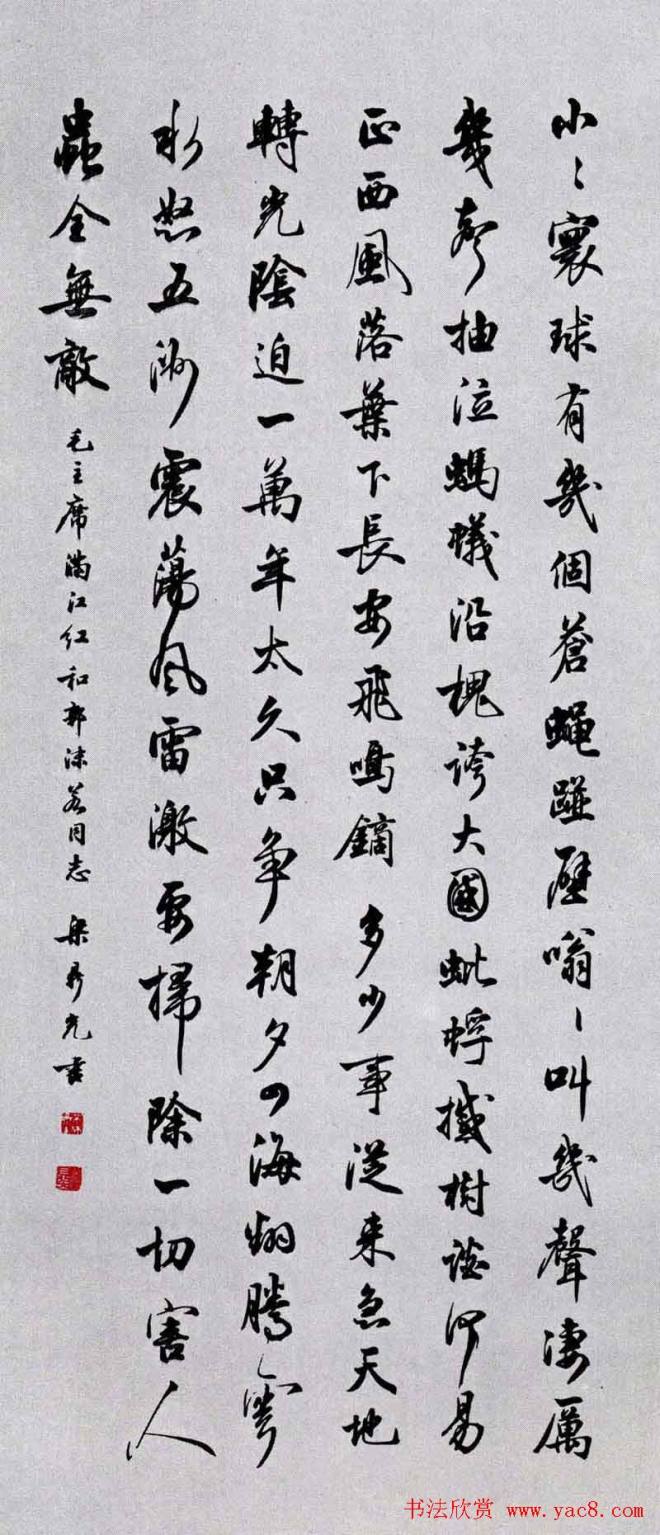 小〻寰球有幾個蒼蠅踫壁嗡〻叫幾聲凄厲
幾聲抽泣螞蟻沿槐誇大國蚍蜉撼樹談何易
正西風落葉下長安飛鳴鏑多少事從来急天地
轉光陰迫一萬年太久只争朝夕四海翻騰雲
水怒五洲震蕩風雷激要掃除一切害人
蟲全無敵 毛主席滿江紅和郭沫若同志 梁鼎光書
书法欣赏 www.yac8.com